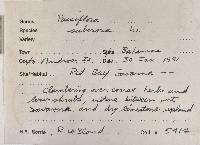 Genus Passiflora
Species suberosa L.
Variety
Town State Bahamas
Co. Andros Is. Date 30 Jan 1991
Site/Habitat Red Bay Savanna --
Clambering over coarse herbs and
low shrubs, ecotone between wet
savanna and dry limestone upland
R.W.
Coll # 5414